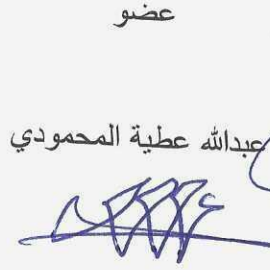 عضو
عبدالله عطية المحمودي